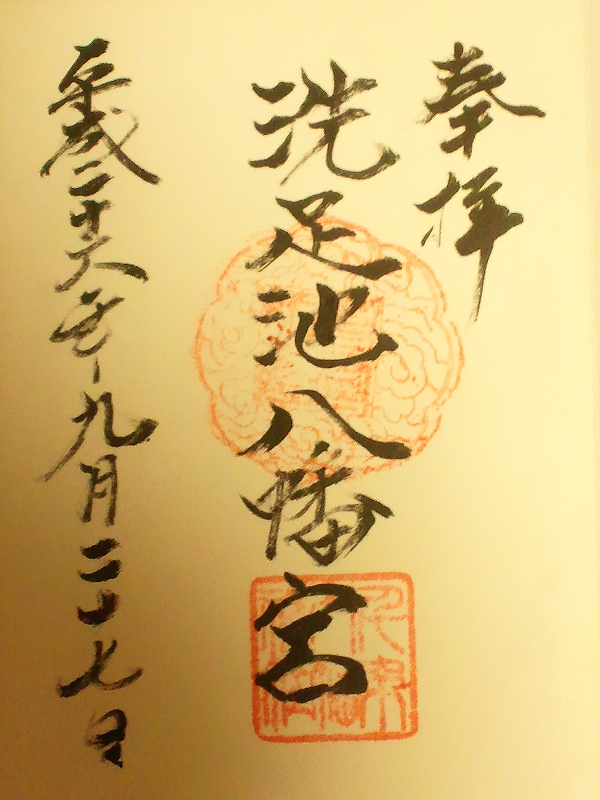 奉拝
洗足池八幡宮
平成二十六年九月二十七日